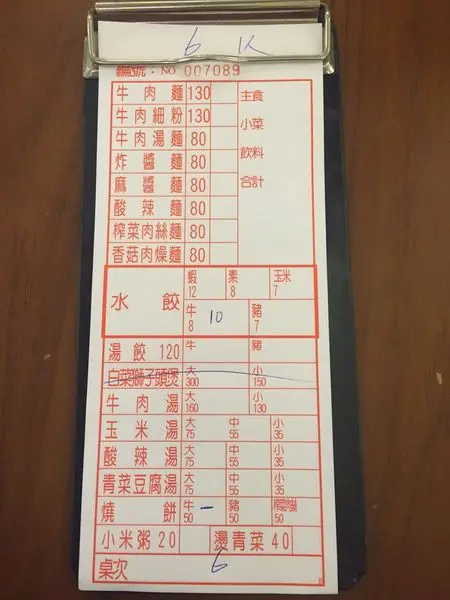 6 K
編號：NO 007089
牛肉麵 130 主食
牛肉細粉 130 小菜
牛肉湯麵 80 飲料
炸醬麵 80
麻醬麵 80 合計
酸辣麵 80
榨菜肉絲麵 80
香菇肉燥麵 80
水餃 蝦 12 素 8 玉米 7
牛 8 10 豬 7
湯餃 120 牛 豬
白菜獅子頭煲 大 300 小 150
牛肉湯 大 160 小 130
玉米湯 大 75 中 55 小 35
酸辣湯 大 75 中 55 小 35
青菜豆腐湯 大 75 中 55 小 35
燒餅 牛 50 一 豬 50 50
小米粥 20 燙青菜 40
桌次 6